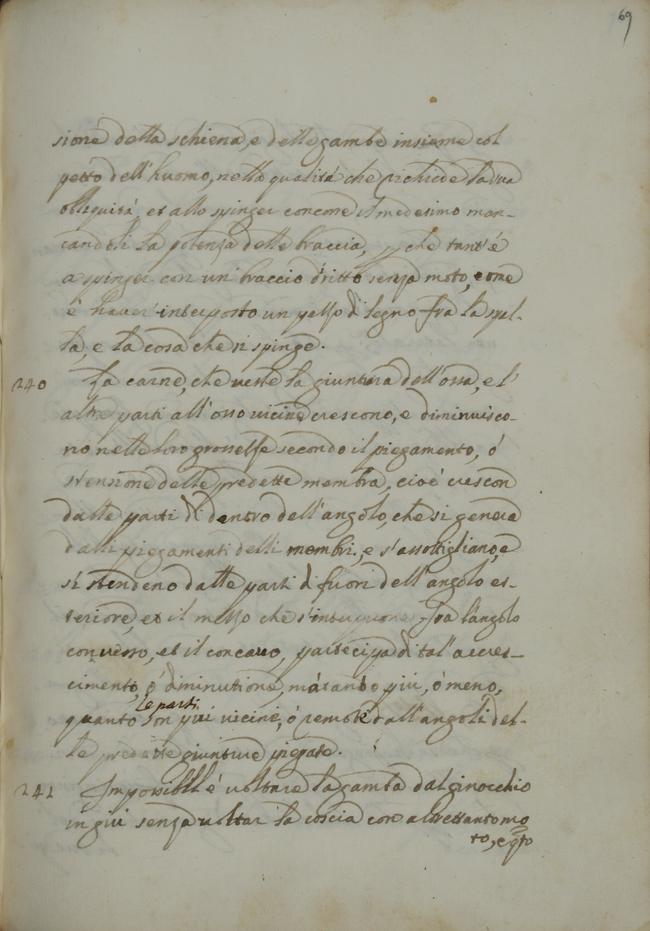 69
sione della schiena, e delle gambe insieme col
petto dell'huomo, nella qualità che richiede la sua
obliquità, et allo spinger concorre il medesimo man-
candoli la potenza delle braccia, che tant'è
a spinger con un braccio dritto senza moto, come
è haver interposto un pezzo di legno fra la spal-
la, e la cosa che si spinge.
240 La carne, che veste la giuntura dell'ossa, e l'
altre parti all'osso vicine crescono, e diminuisco-
no nelle loro grossezze secondo il piegamento, ó
stensione delle predette membra, cioè crescon
dalle parti di dentro dell'angolo, che si genera
dalli piegamenti delli membri, e s'assottigliano, e
si stendeno dalle parti di fuori dell'angolo es-
teriore, et il mezzo che s'interpone fra l'angolo
convesso, et il concavo, partecipa di tal'accres-
cimento, ó diminutione, má tanto piú, ó meno,
quanto le parti son piú vicine, ó remote dall'angoli del-
le predette giunture piegate.
241 Impossibil é voltare la gamba dal ginocchio
in giú senza voltar la coscia con altrettanto mo
to, e